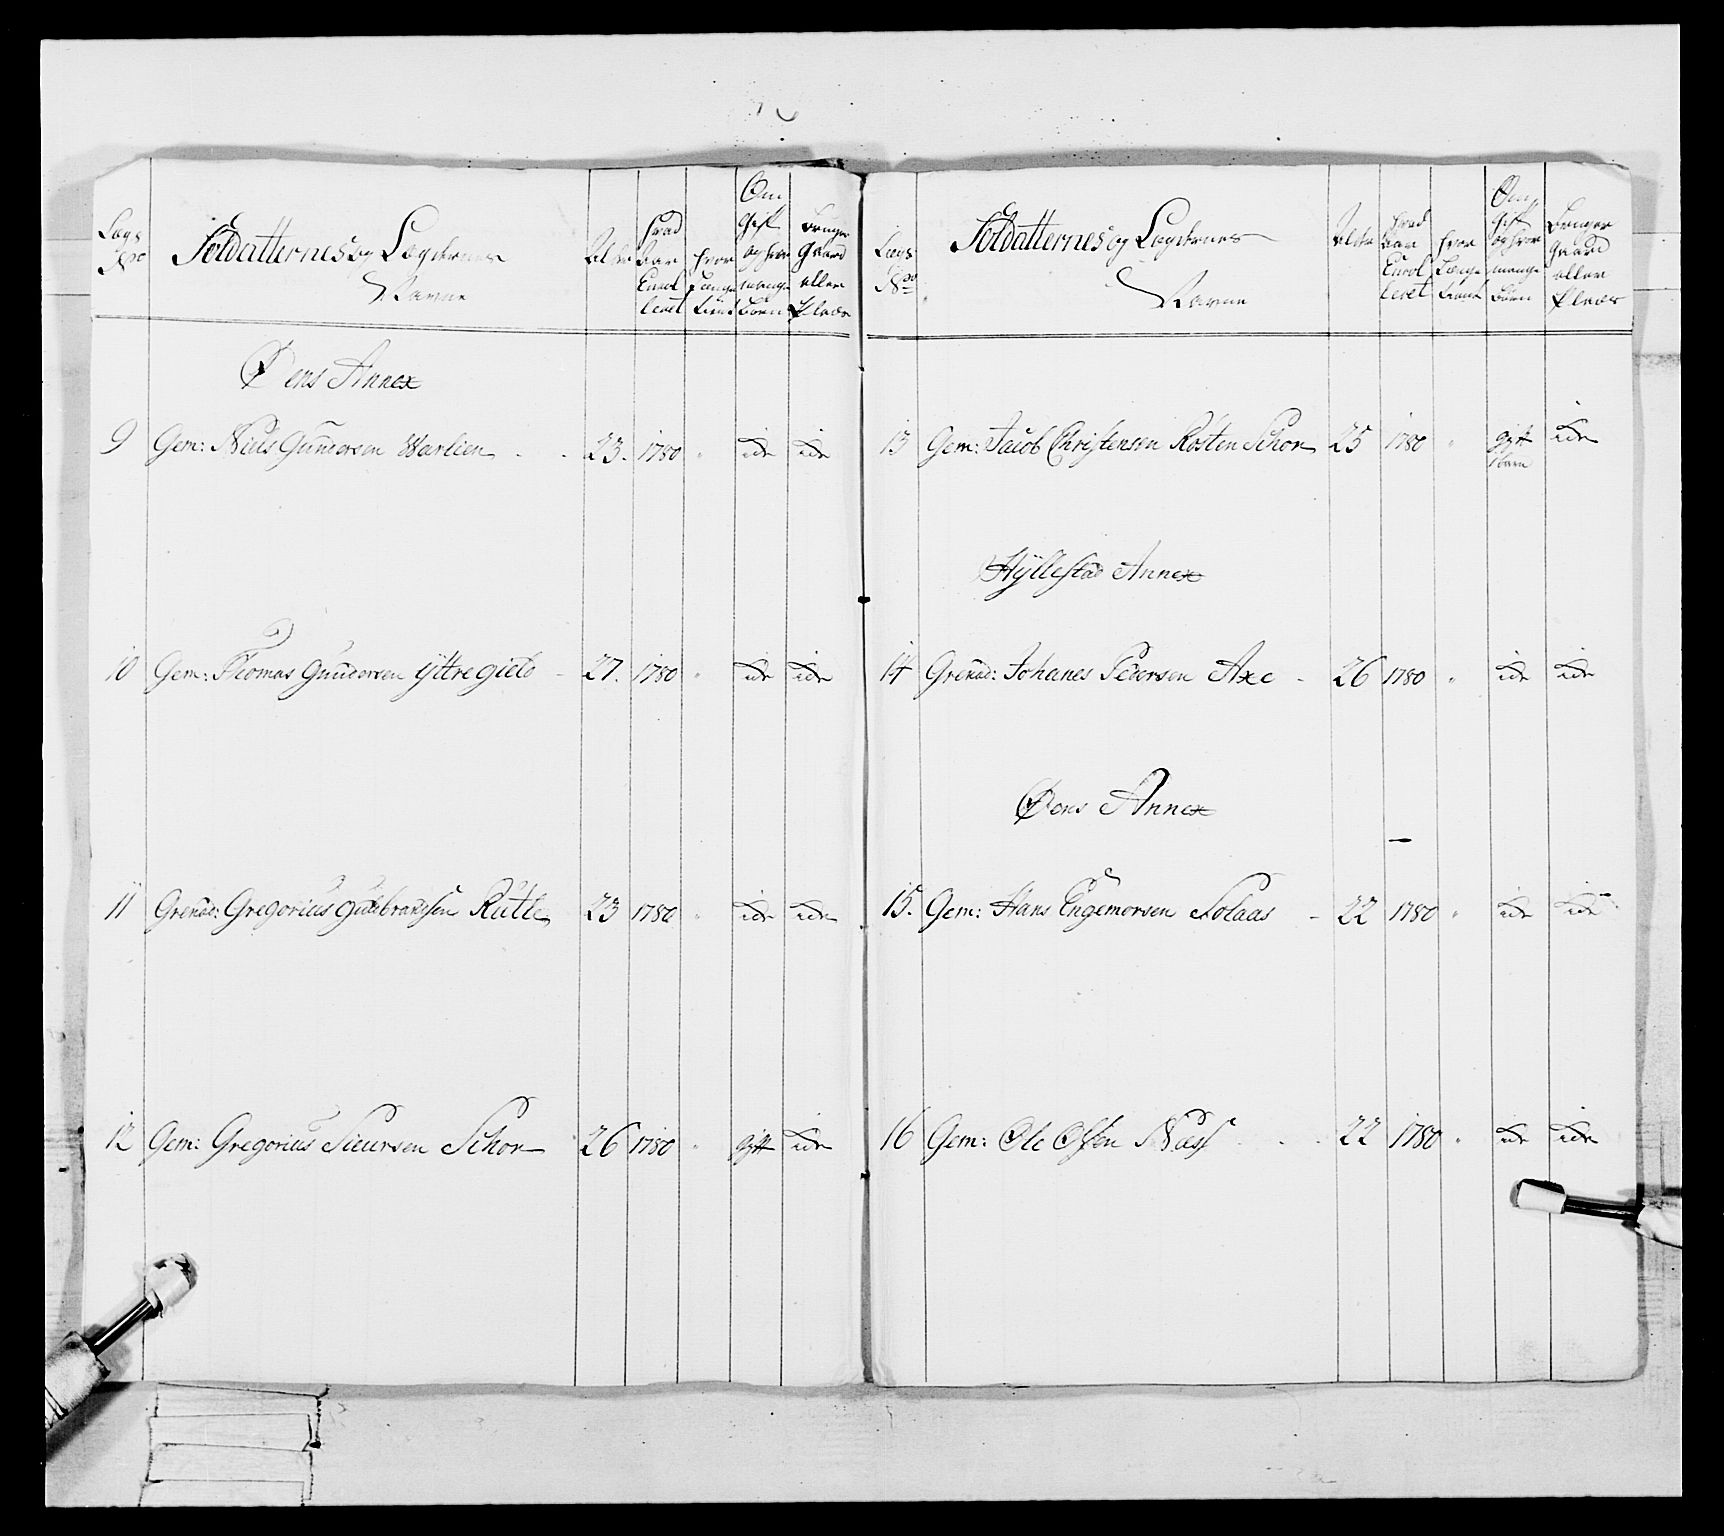 Lægs No
Soldatternes og Lægdernes Navne
Alder
Hvad Aar Enrolleret
Hvor Længe tient
Om Gift og hvor mange Børn
Bruger Gaard eller Plads
Øens Annex
9 Gem: Niels Gundersen Warlien 23. 1780 " ide ide
10 Gem: Thomas Gundersen Yttregield 27. 1780 " ide ide
11 Grenad: Gregorius Gulbrandsen Rutle 23 1780 " ide ide
12 Gem: Gregorius Siursen Schor 26 1780 " gift ide
Lægs No
Soldatternes og Lægdernes Navne
Alder
Hvad Aar Enrolleret
Hvor Længe tient
Om Gift og hvor mange Børn
Bruger Gaard eller Plads
13 Gem: Jacob Christensen Rosten Schor 25 1780 " gift 1 barn ide
Hÿllestad Annex
14 Grenad: Johanes Pedersen Axe 26 1780 " ide ide
Øens Annex
15. Gem: Hans Engemorsen Solaas 22 1780 " ide ide
16 Gem: Ole Olsen Næss 22 1780 " ide ide